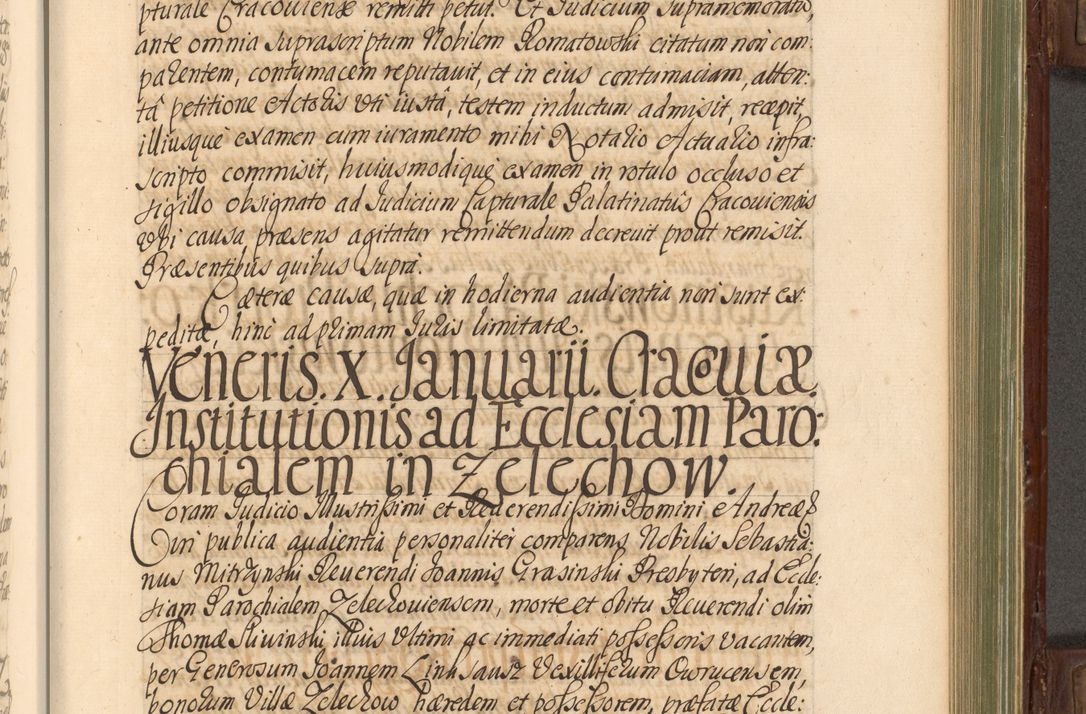 pturale Cracoviense remitti petiit. Et Judicium supramemoratu,
ante omnia suprascriptum Nobilem Romatowski citatum non com:
parentem, contumacem reputauit, et in eius contumaciam, atten:
tâ petitione Actoris uti iustâ, testem inductum admisit, recepit,
illiusque examen cum iuramento mihi Notario Actuario infra:
scripto commisit, huiusmodique examen in rotulo occluso et
sigillo obsignato ad Judicium Capturale Palatinatûs Cracoviensis
ubi causa præsens agitatur remittendum decreuit prout remisit.
Præsentibus quibus supra.
Cæteræ causæ, quæ in hodierna audientia non sunt ex:
peditæ, hinc ad primam Juris limitatæ.
Veneris. X. Januarii. Cracouiæ.
Institutionis ad Ecclesiam Paro:
chialem in Zelechow.
Coram Judicio Illustrissimi et Reuerendissimi Domini Andreæ &
in publica audientia personaliter comparens Nobilis Sebastia:
nus Mitrzynski Reuerendi Joannis Grasinski Presbyteri, ad Eccle:
siam Parochialem Zelechouiensem, morte et obitu Reuerendi olim
Thomæ Sliwinski illius ultimi ac immediati possessoris vacantem,
per Generosum Joannem Linksauz Vexilliferum Owrucensem,
bonorum Villæ Zelechow hæredem et possessorem, præfatæ Eccle: